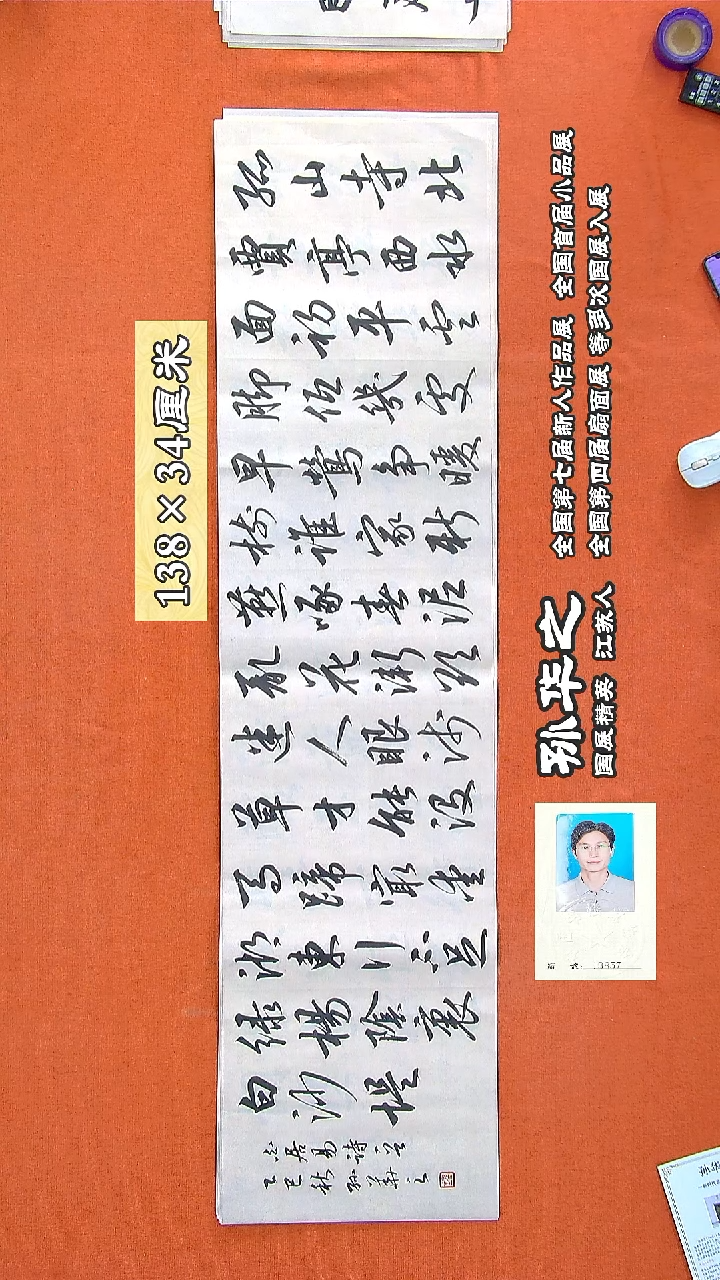 孤山寺北
賈亭西水
面初平雲
脚低幾處
早鶯争暖
樹誰家新
燕啄春泥
乱花漸欲
迷人眼浅
草才能没
馬蹄最愛
湖東行不足
绿楊陰裏
白沙堤
白居易詩
乙巳秋孫華之
138×34厘米
孙华之
国展精英 江苏人
全国第七届新人作品展 全国首届小品展
全国第四届扇面展 等多次国展入展
3857